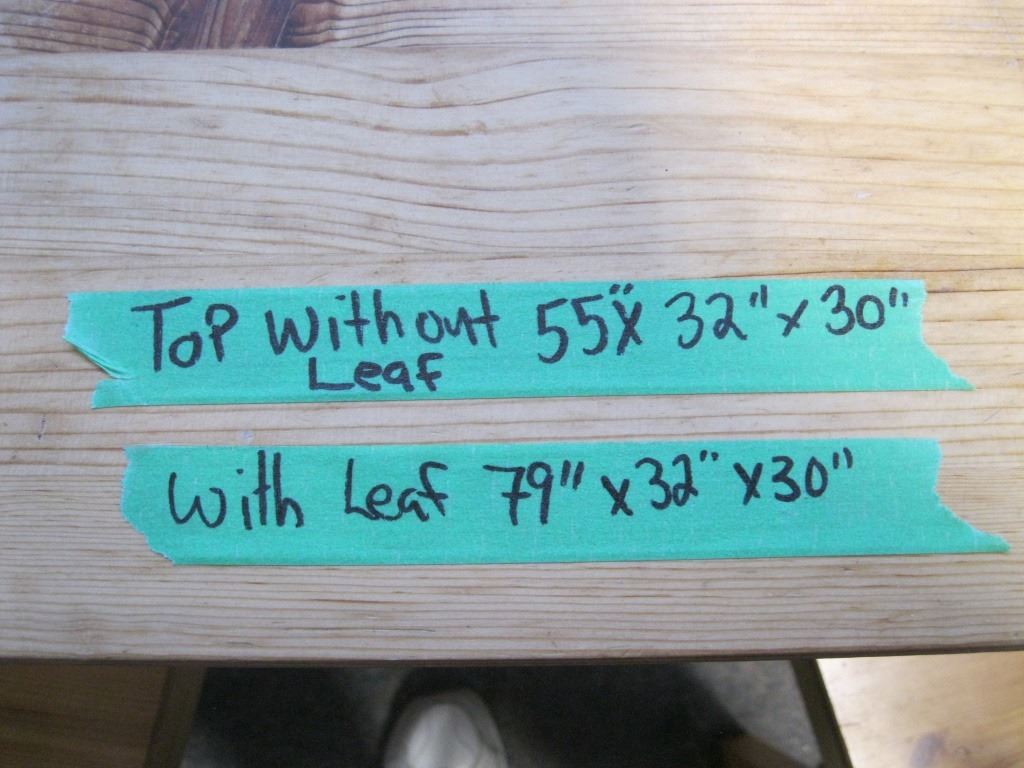 Top Without 55" x 32" x 30"
Leaf
With Leaf 79" x 32" x 30"